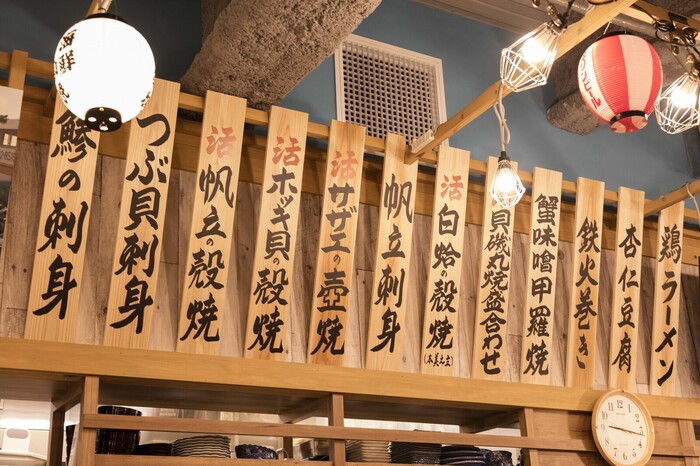 海鮮
鯵の刺身
つぶ貝刺身
活帆立の殻焼
活ホッキ貝の殻焼
活サザエの壺焼
帆立刺身
活白蛤の殻焼
(本美之主)
貝磯丸焼盛合わせ
蟹味噌甲羅焼
鉄火巻き
杏仁豆腐
鶏ラーメン